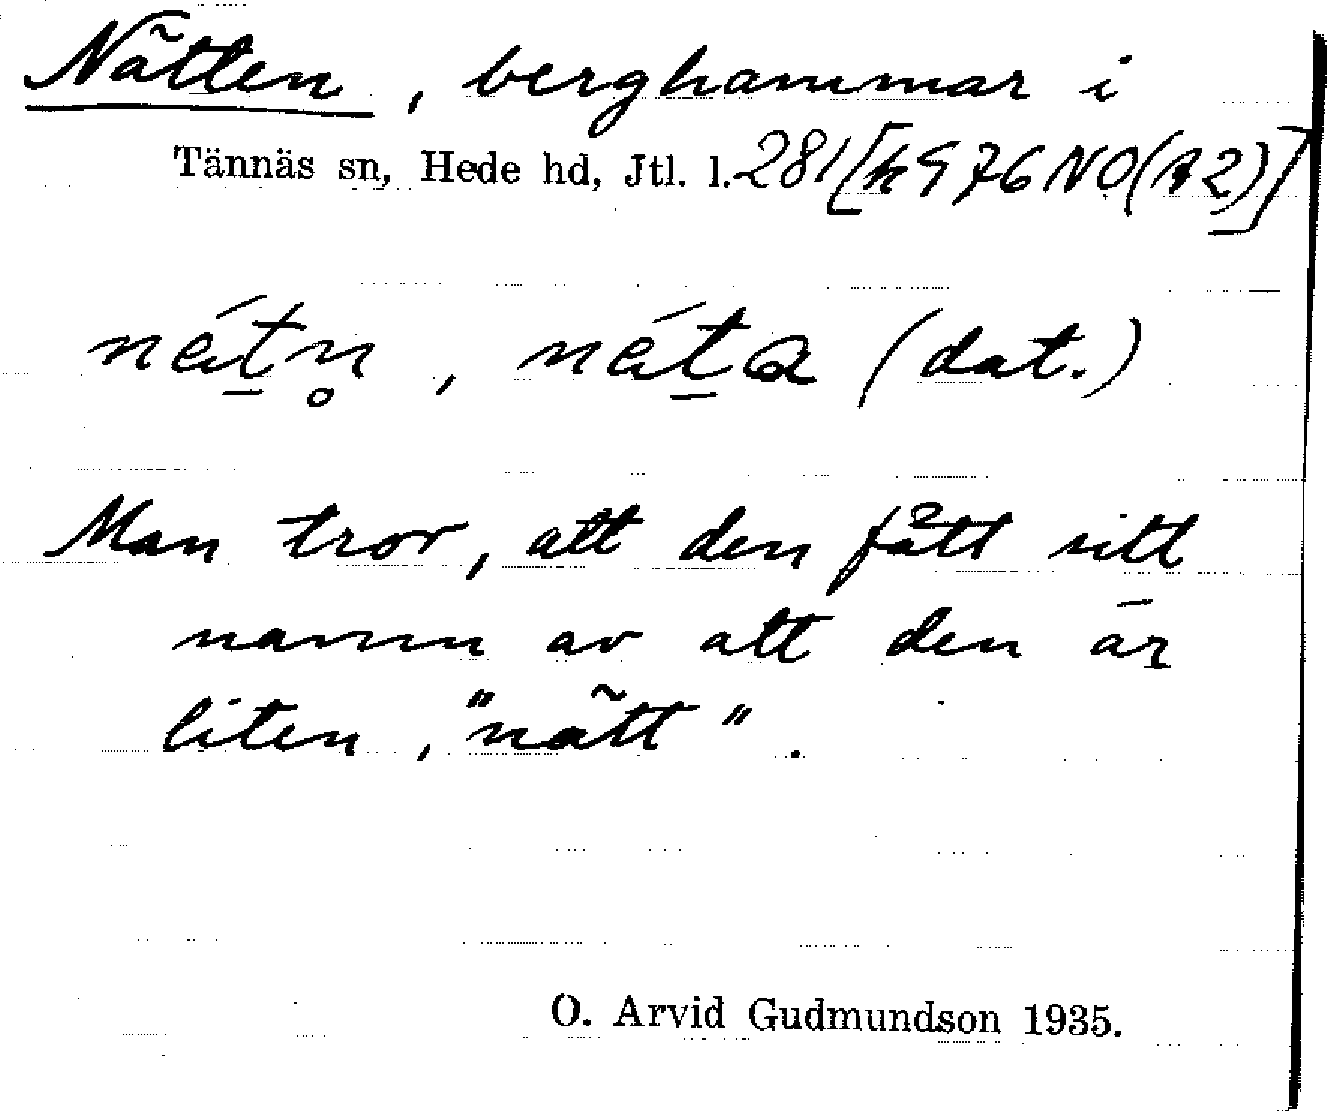 Nätten, berghammar i
Tännäs sn, Hede hd, Jtl. l. 281 [h976NO(A2)]
nát̠n̥, nát̠a (dat.)
Man tror, att den fått sitt
namn av att den är
liten, "nätt".
O. Arvid Gudmundson 1935.